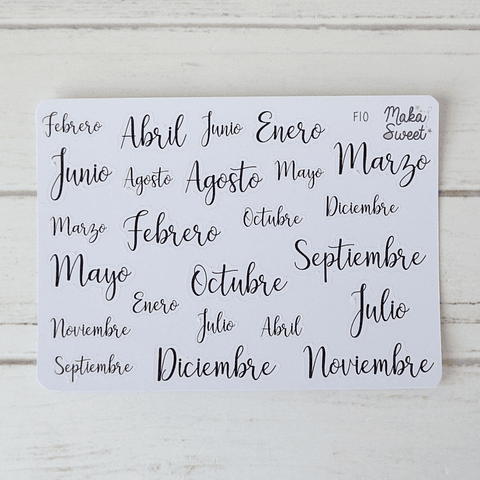 Febrero Abril Junio Enero F10 Maka Sweet
Junio Agosto Agosto Mayo Marzo
Marzo Febrero Octubre Diciembre
Mayo Octubre Septiembre
Enero Julio
Noviembre Julio Abril
Septiembre Diciembre Noviembre